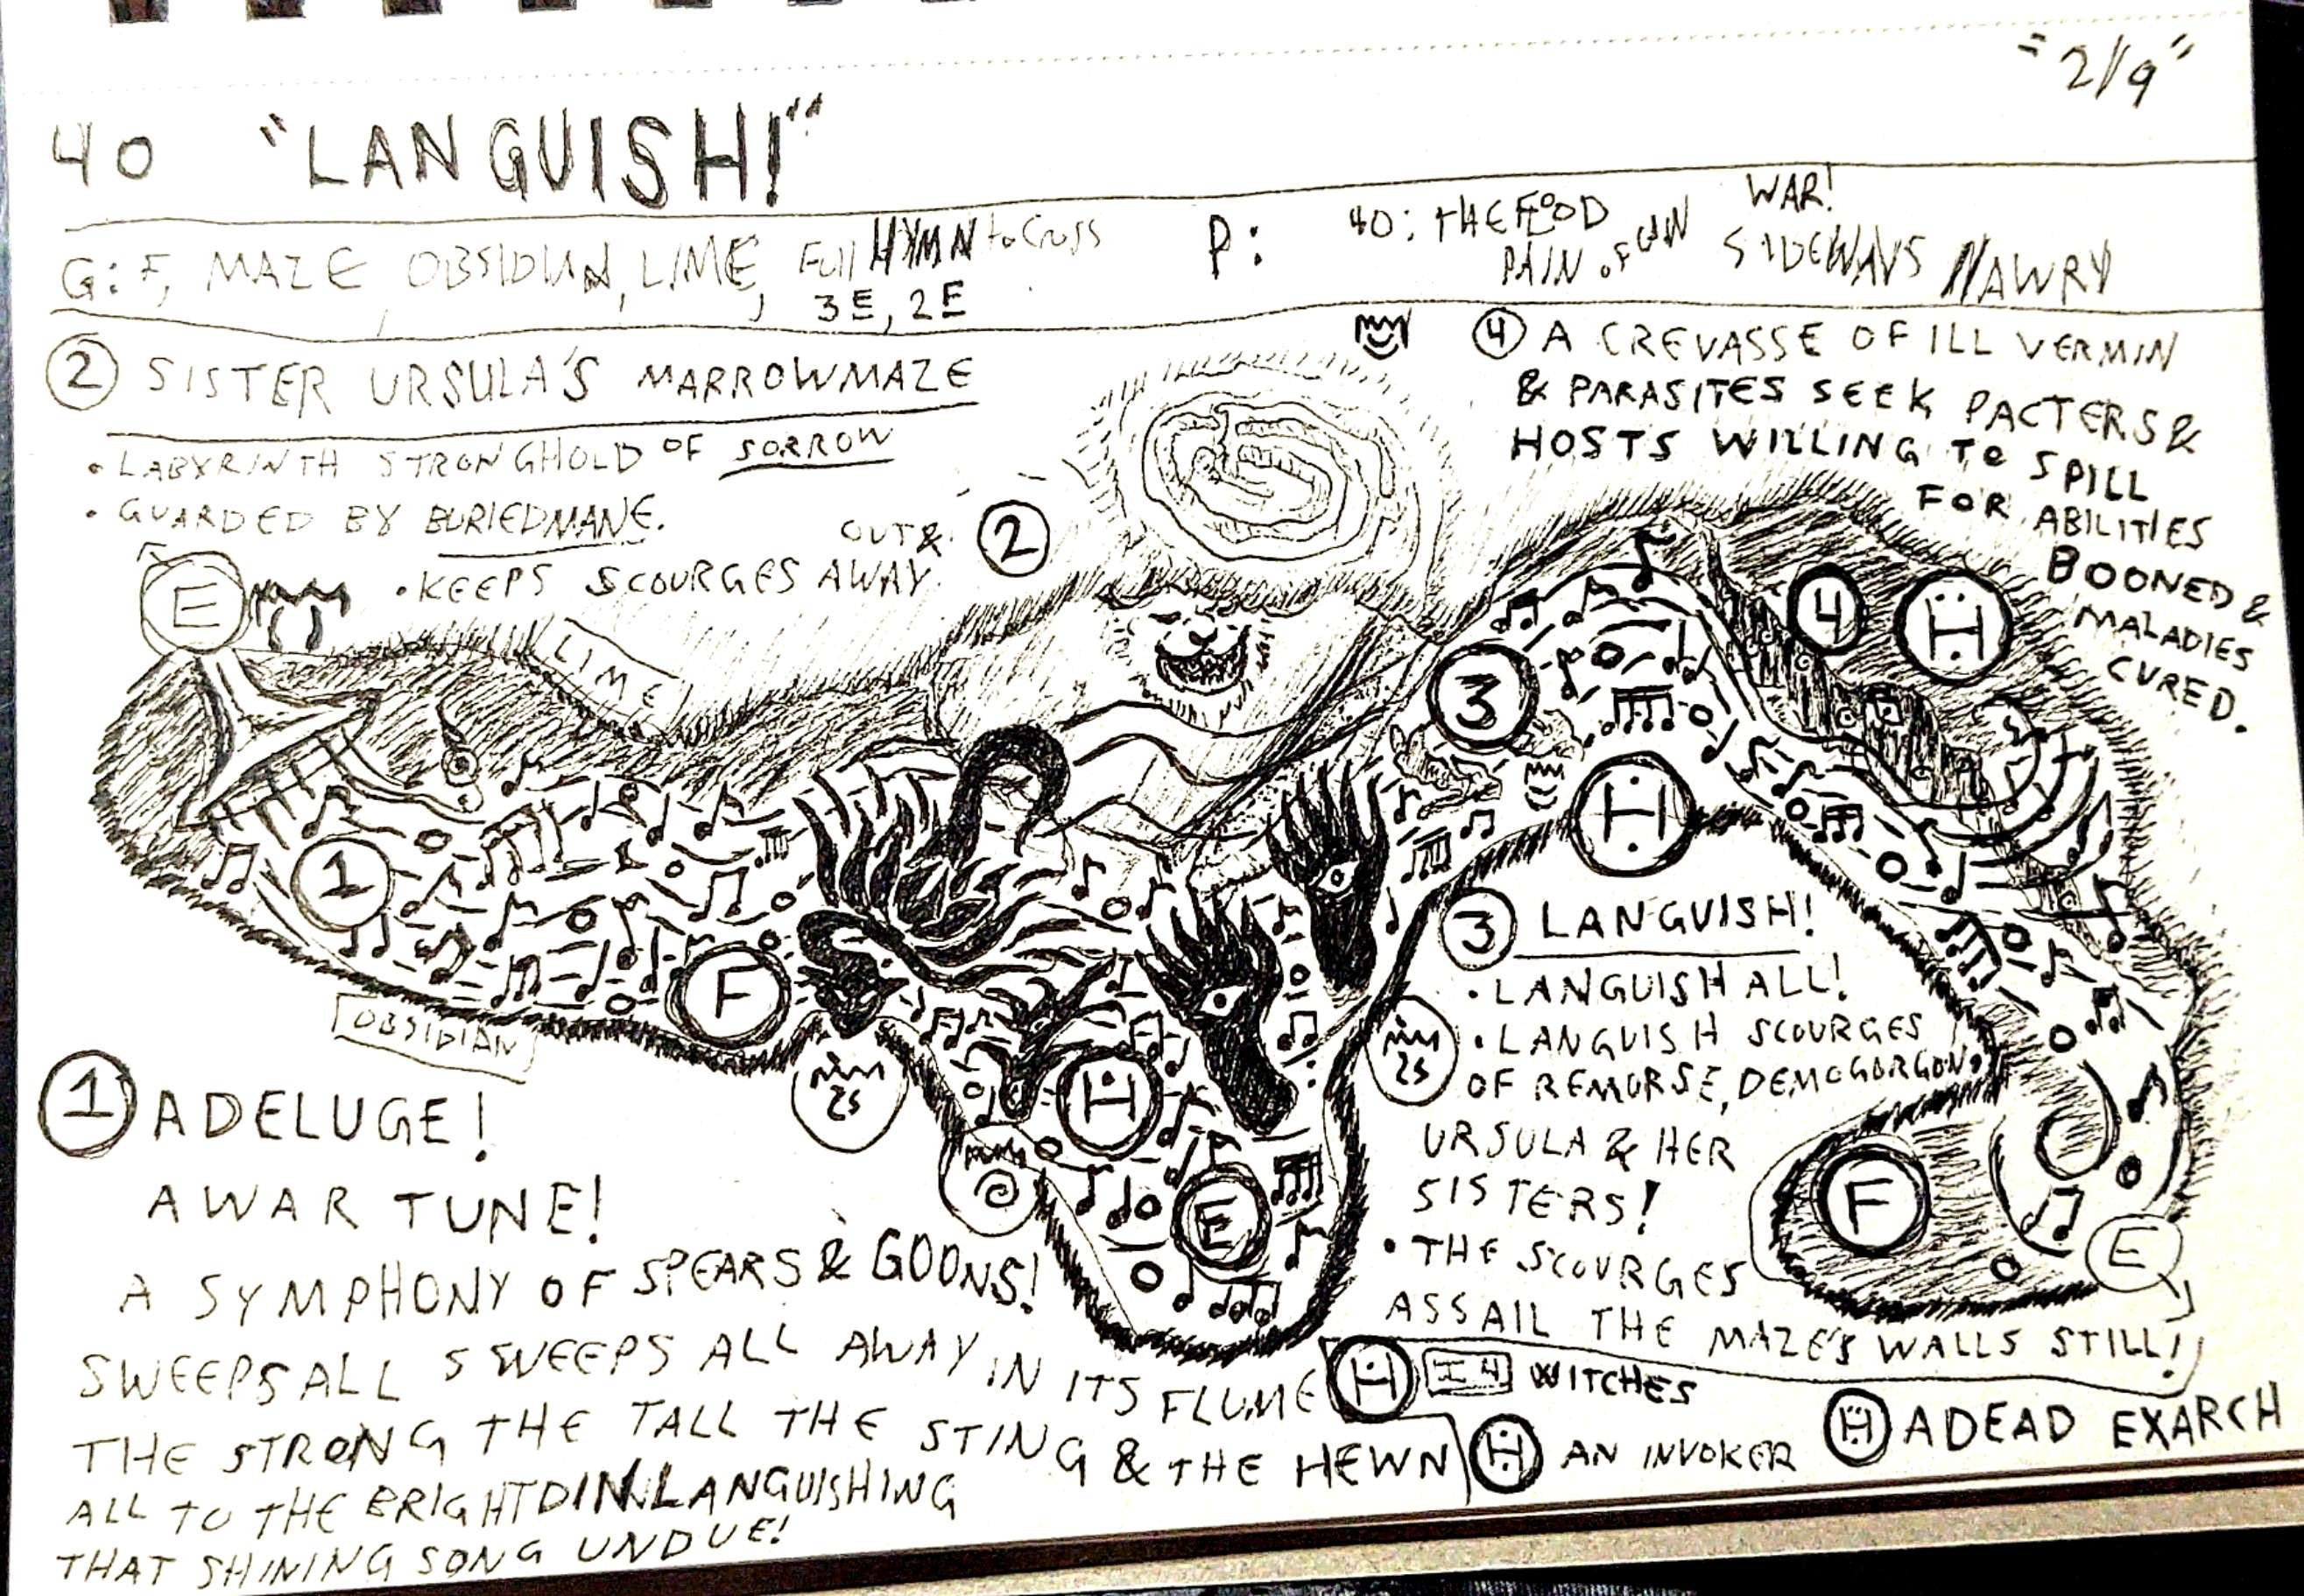 "2//9"
40 "LANGUISH!"
G: F, MAZE, OBSIDIAN, LIME, Full HYMN to Cross
3E, 2E
P: 40: THE FLOOD WAR!
PAIN OF GUN SIDEWAYS // AWRY
2 SISTER URSULA'S MARROWMAZE
• LABYRINTH STRONGHOLD OF SORROW
• GUARDED BY BURIEDMANE.
• KEEPS SCOURGES OUT & AWAY.
4 A CREVASSE OF ILL VERMIN
& PARASITES SEEK PACTERS &
HOSTS WILLING TO SPILL
FOR ABILITIES
BOONED &
MALADIES
CURED.
E
2
LIME
4
H
3
H
1
F
OBSIDIAN
H
E
F
E
3 LANGUISH!
• LANGUISH ALL!
• LANGUISH SCOURGES
OF REMORSE, DEMOGORGON,
URSULA & HER
SISTERS!
• THE SCOURGES
ASSAIL THE MAZE'S WALLS STILL!
1 A DELUGE!
A WAR TUNE!
A SYMPHONY OF SPEARS & GOONS!
SWEEPS ALL SWEEPS ALL AWAY IN ITS FLUME
THE STRONG THE TALL THE STING & THE HEWN
ALL TO THE BRIGHT DIN LANGUISHING
THAT SHINING SONG UNDUE!
H I4 WITCHES
H AN INVOKER
H A DEAD EXARCH